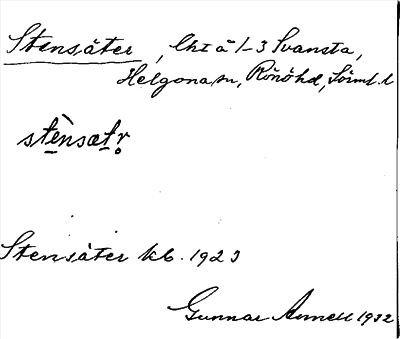 Stensäter, lht å 1-3 Svansta,
Helgona sn, Rönöhd, Sörml. l
stènsætr̥
Stensäter kb. 1923
Gunnar 1932